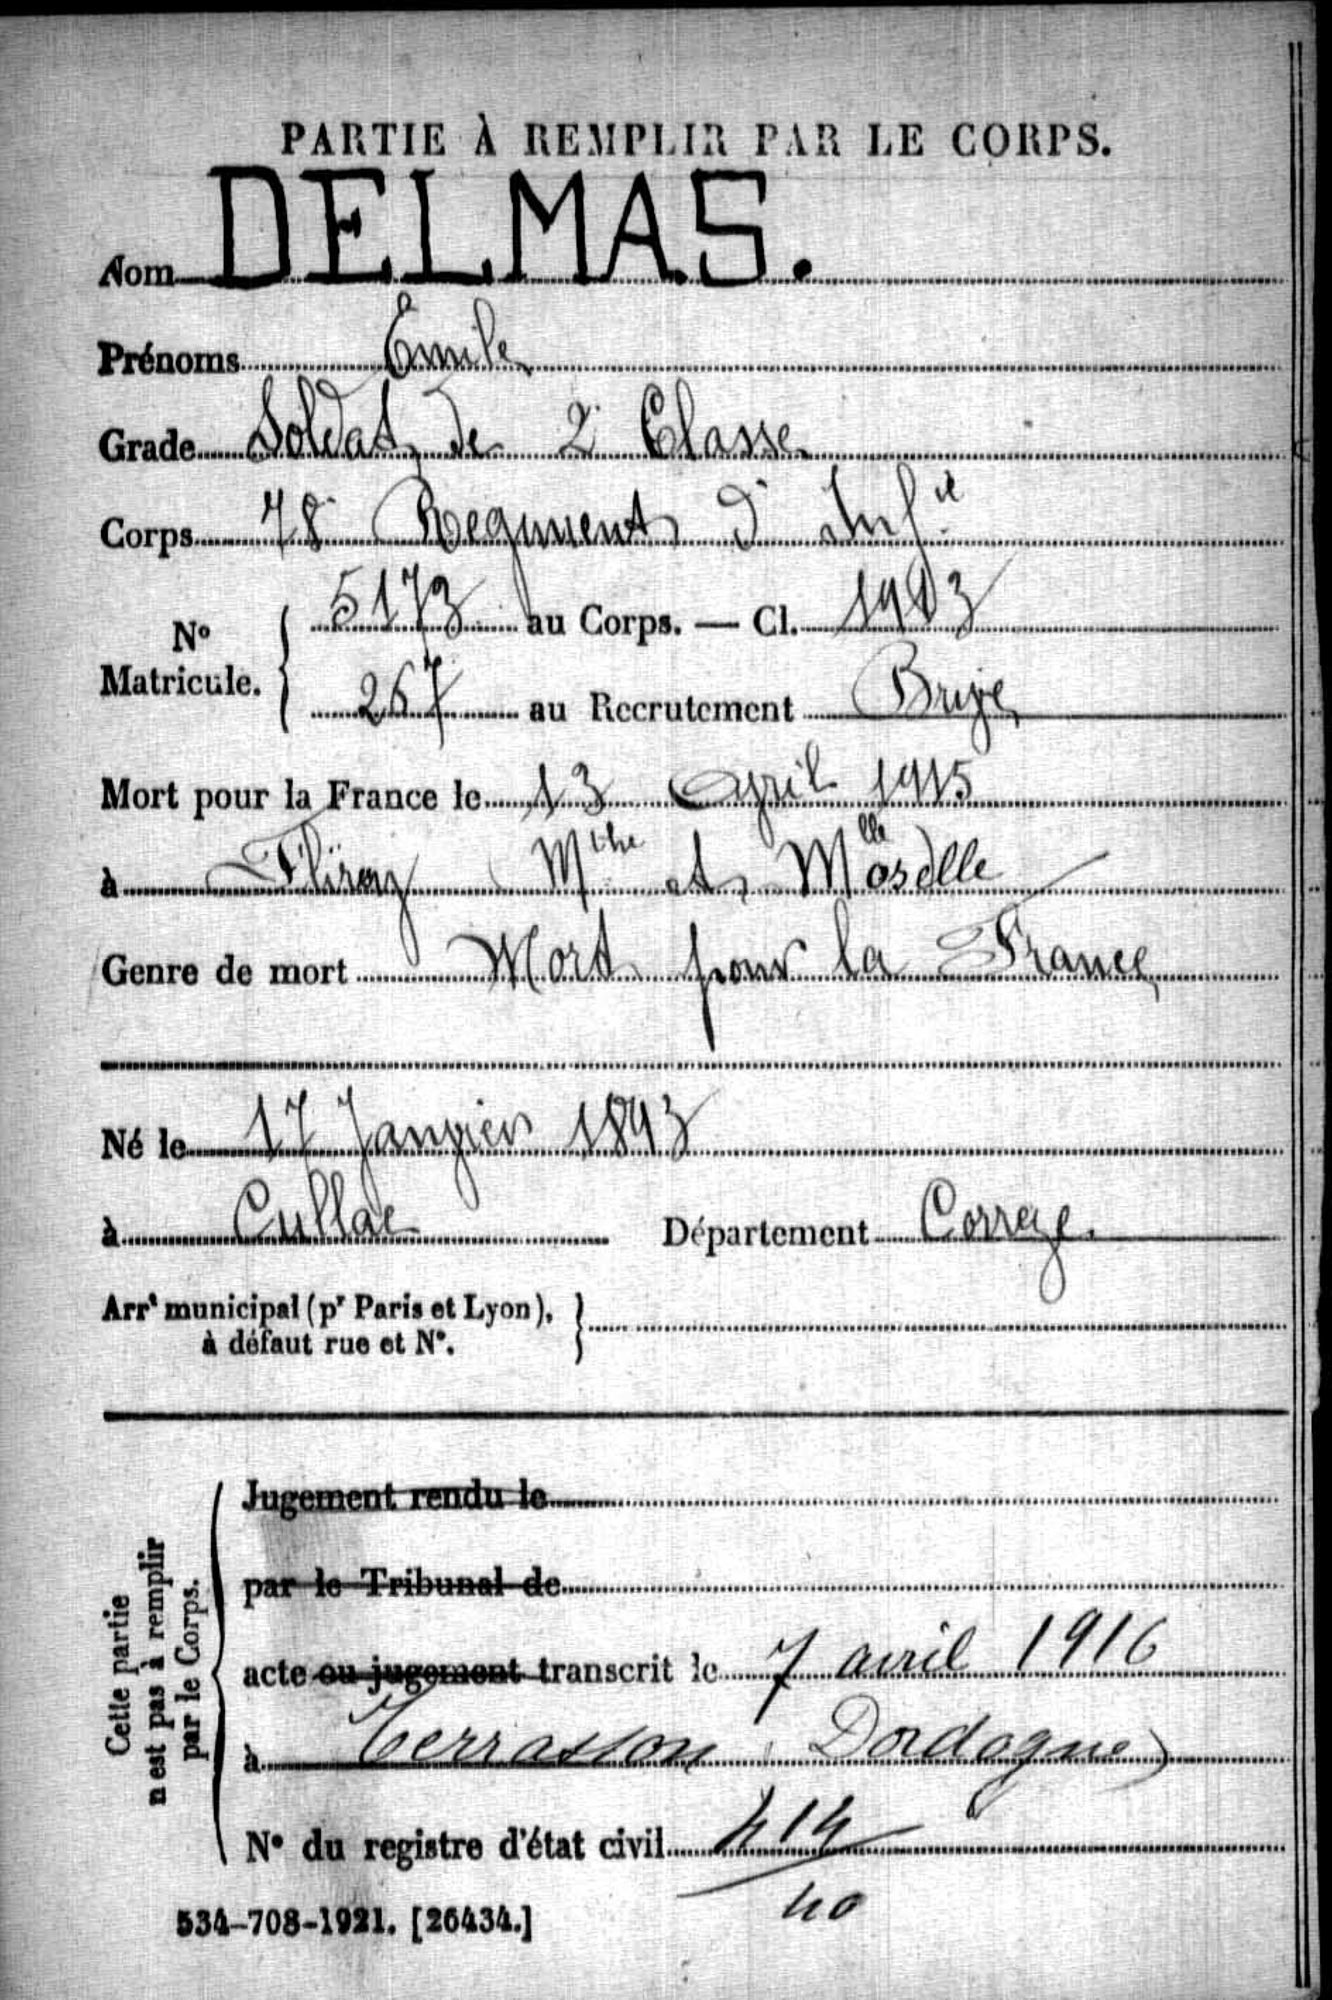 PARTIE À REMPLIR PAR LE CORPS.
Nom DELMAS.
Prénoms Emile
Grade Soldat de 2e Classe
Corps 78e Regiment d'Infie
No Matricule. { 5173 au Corps. — Cl. 1913
267 au Recrutement Brive
Mort pour la France le 13 Avril 1915
à Flirey Mthe et Moselle
Genre de mort Mort pour la France
Né le 17 Janvier 1893
à Cullac Département Correze.
Arrt municipal (pr Paris et Lyon),
à défaut rue et No.
Cette partie
n'est pas à remplir
par le Corps.
Jugement rendu le
par le Tribunal de
acte ou jugement transcrit le 7 avril 1916
à Terrasson (Dordogne)
No du registre d'état civil 414
40
534-708-1921. [26434.]